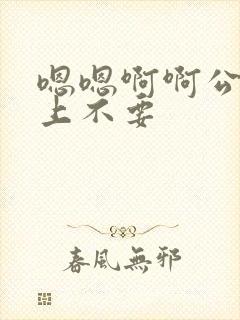 嗯嗯啊啊公
上不要
春風無邪